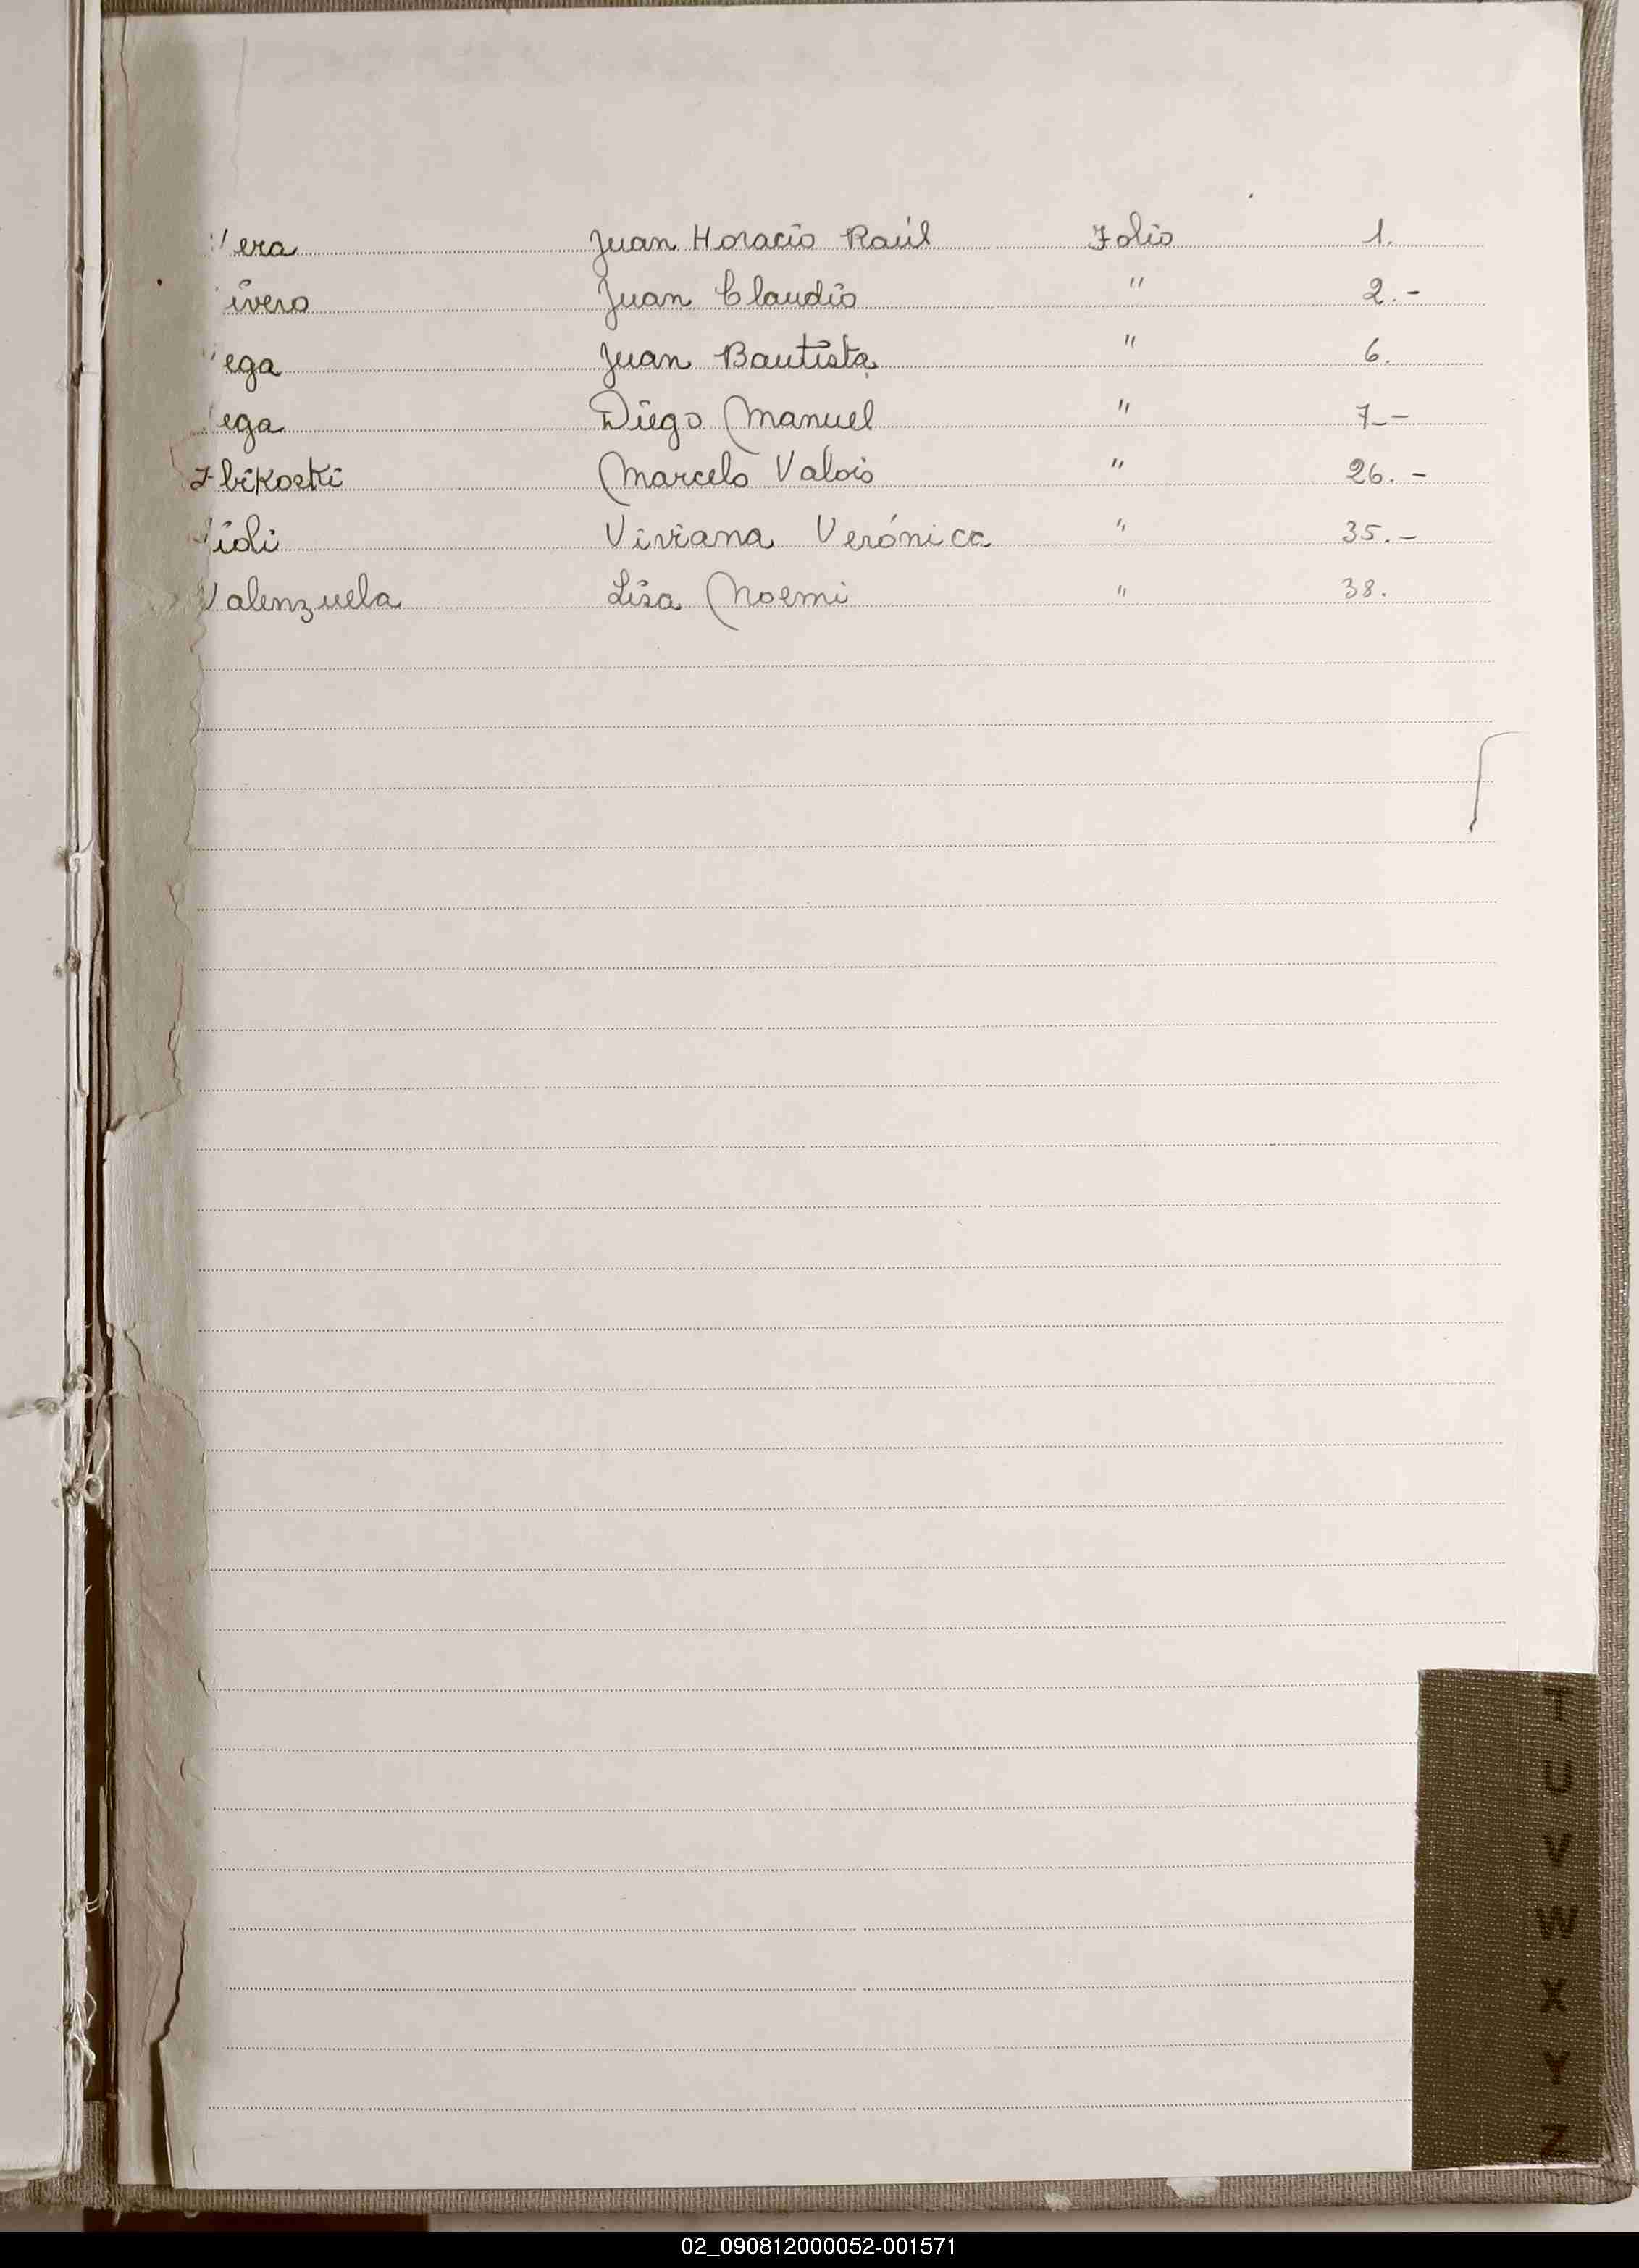 Vera Juan Horacio Raúl Folio 1.
ivero Juan Claudio " 2.-
Vega Juan Bautista " 6.
Vega Diego Manuel " 7.-
Zbikoski Marcelo Valois " 26.-
Violi Viviana Verónica " 35.-
Valenzuela Lisa Noemi " 38.
T
U
V
W
X
Y
Z
02_090812000052-001571